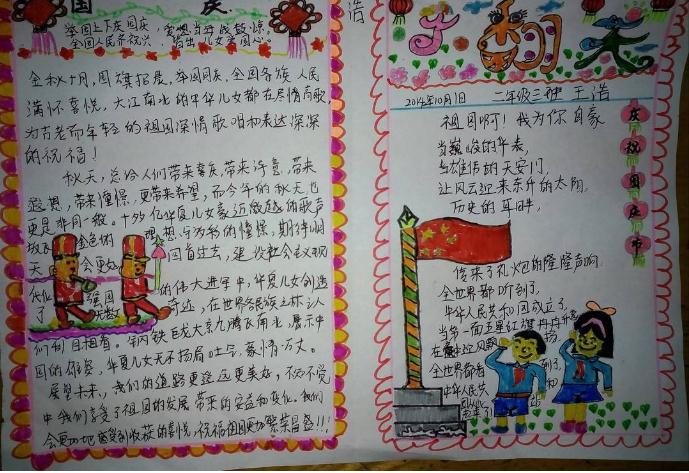 国庆
举国上下庆国庆
全国人民齐祝兴
金秋十月,国旗招展,举国同庆,全国各族人民
满怀喜悦,大江南北的中华儿女都在尽情高歌,
为古老而年轻的祖国深情歌唱和表达深深
的祝福!
秋天,总给人们带来喜庆,带来诗意,带来
遐想,带来憧憬,更带来希望,而今年的秋天也
更是非同一般。十
亿华夏儿女豪迈激越的歌声
金色的
理想
的憧憬,期待明
天
会更好
回首过去,建设社会主义现
代化
强国
的伟大进军中,华夏儿女创造
了
无数
奇迹,在世界民族之林,让人
们刮目相看。
铁龙
九
腾飞南北,展示中
国的雄姿,华夏儿女无不扬眉吐气,豪情万丈。
展望未来,我们的道路更远更美好,不知不觉
中我们享受了祖国的发展带来的安益和变化。我们
会更加地感受到收获的喜悦,祝福祖国更加繁荣昌盛!!!
浩
手
天
2014年10月1日 二年级三班 王浩
祖国啊!我为你自豪
当巍峨的华表,
当雄伟的天安门,
让风云迎来东升的太阳,
历史的耳畔,
传来了礼炮的隆隆声响,
全世界都听到了,
中华人民共和国成立了,
当第一面五星红旗冉冉升起
在
迎风飘
扬
全世界都看
到了
中华人民共
和
国
起来了!
庆祝国庆节